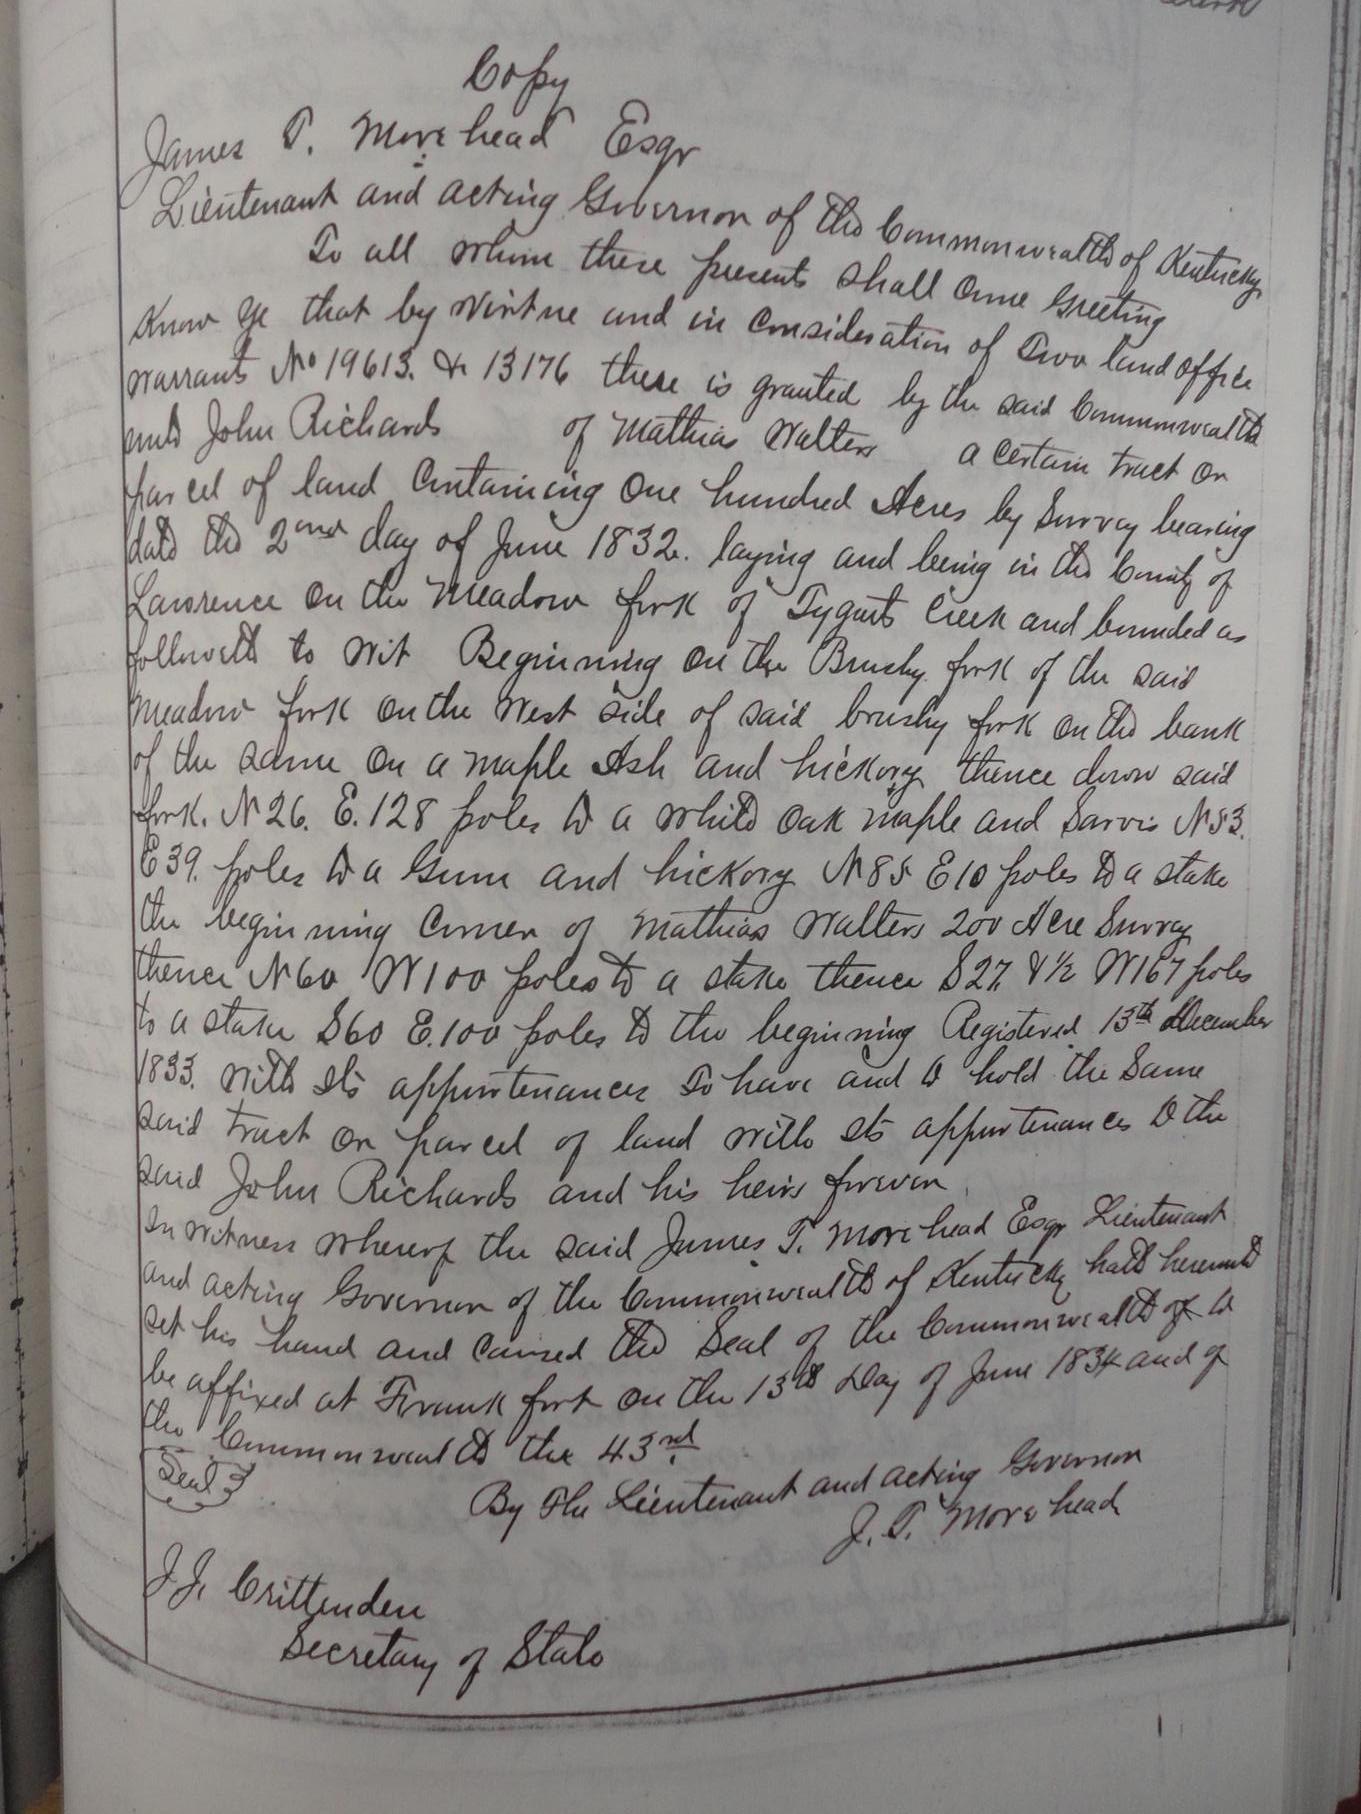 Copy
James T. Morehead Esqr
Lieutenant and acting Governor of the Commonwealth of Kentucky
To all whom these presents shall come Greeting
Know ye that by virtue and in consideration of Two land office
warrants No 19613. & 13176 there is granted by the said Commonwealth
unto John Richards of Mathias Walters a certain tract or
parcel of land containing one hundred Acres by Survey bearing
date the 2nd day of June 1832. laying and being in the County of
Lawrence on the Meadow fork of Tygarts Creek and bounded as
followeth to wit Beginning on the Brushy fork of the said
Meadow fork on the west side of said brushy fork on the bank
of the same on a maple Ash and hickory thence down said
fork. N 26. E. 128 poles to a white oak maple and Sarvis N 53.
E 39. poles to a Gum and hickory N 85 E 10 poles to a stake
the beginning corner of Mathias Walters 200 Acre Survey
thence N 60 W 100 poles to a stake thence S 27. & 1/2 W 167 poles
to a stake S 60 E. 100 poles to the beginning Registered 13th December
1833. with its appurtenances To have and to hold the Same
said tract or parcel of land with its appurtenances to the
said John Richards and his heirs forever
In witness whereof the said James T. Morehead Esqr Lieutenant
and acting Governor of the Commonwealth of Kentucky hath hereunto
set his hand and caused the Seal of the Commonwealth of to
be affixed at Frankfort on the 13th Day of June 1834 and of
the Commonwealth the 43rd.
Seal
By The Lieutenant and acting Governor
J. T. Morehead
J. J. Crittenden
Secretary of State